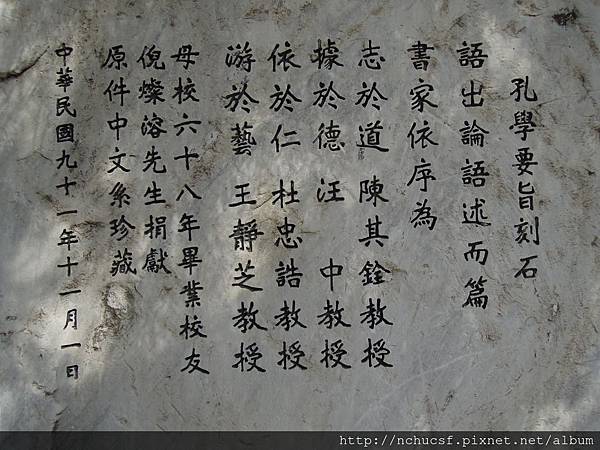 孔學要旨刻石
語出論語述而篇
書家依序為
志於道 陳其銓教授
據於德 汪 中教授
依於仁 杜忠誥教授
游於藝 王靜芝教授
母校六十八年畢業校友
倪燦溶先生捐獻
原件中文系珍藏
中華民國九十一年十一月一日
http://nchucsf.pixnet.net/album